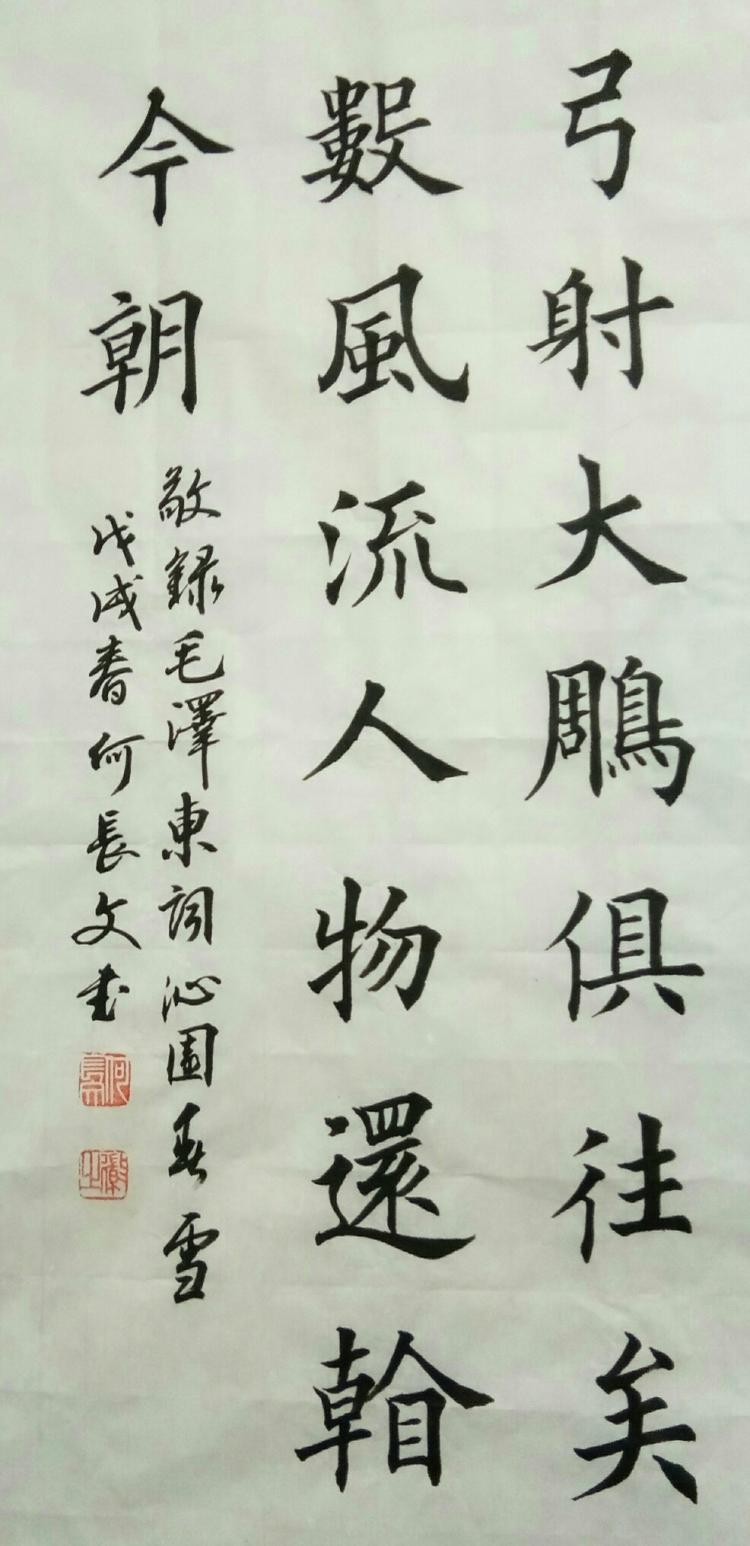 弓射大鵰俱往矣
數風流人物還看
今朝
敬錄毛澤東詞沁園春雪
戊戌春何長文書